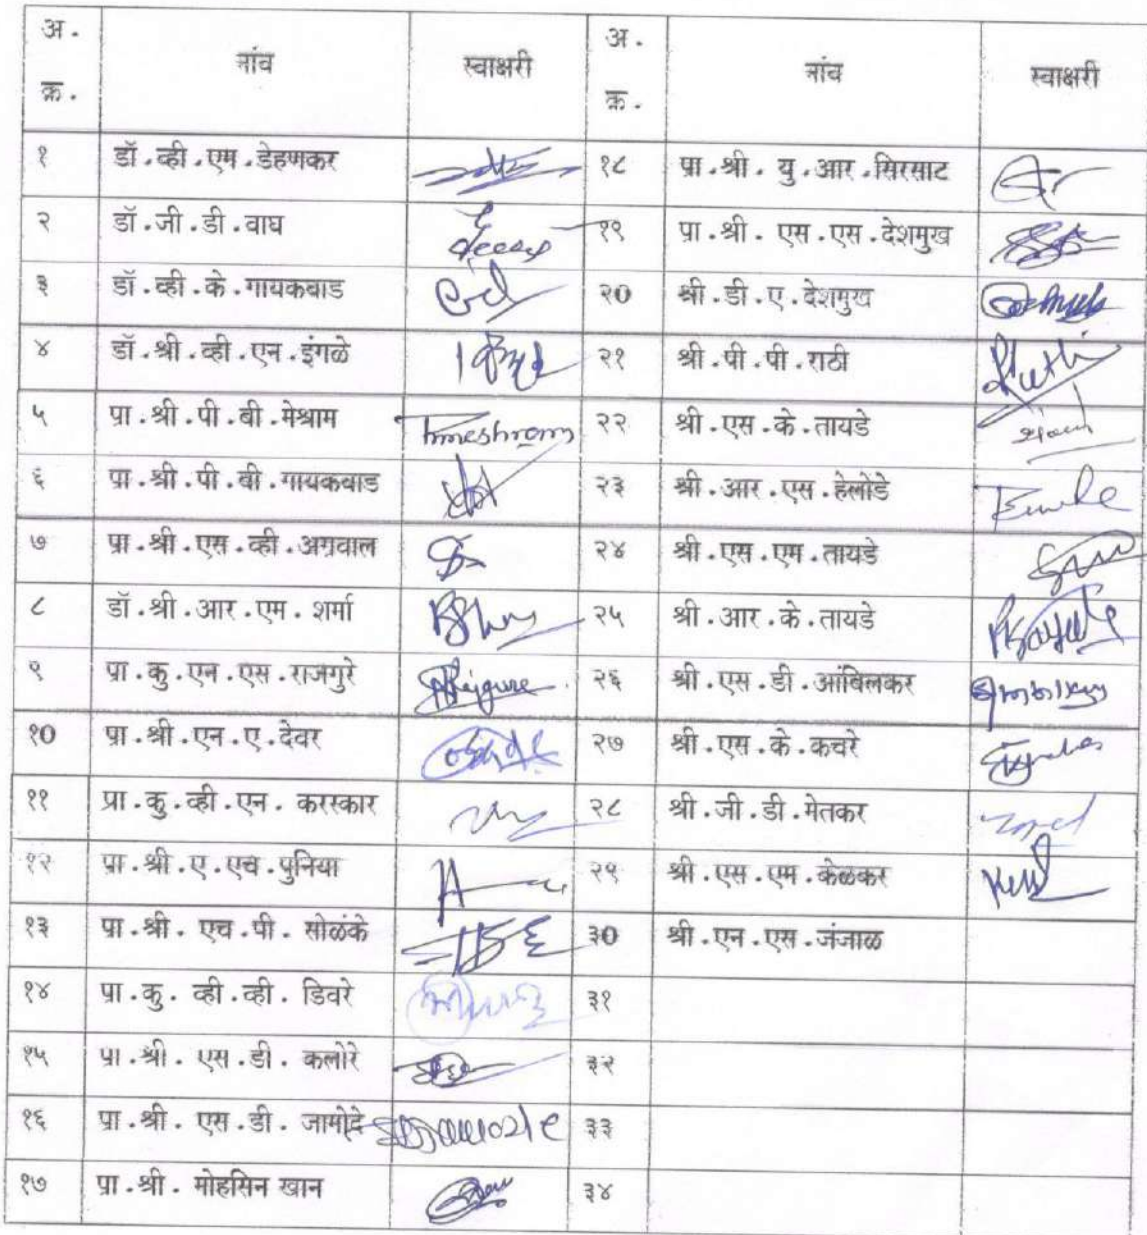 अ.
क्र.
नांव
स्वाक्षरी
अ.
क्र.
नांव
स्वाक्षरी
१ डॉ.व्ही.एम.डेहणकर १८ प्रा.श्री. यु.आर.सिरसाट
२ डॉ.जी.डी.वाघ १९ प्रा.श्री. एस.एस.देशमुख
३ डॉ.व्ही.के.गायकवाड २0 श्री.डी.ए.देशमुख
४ डॉ.श्री.व्ही.एन.इंगळे २१ श्री.पी.पी.राठी
५ प्रा.श्री.पी.बी.मेश्राम २२ श्री.एस.के.तायडे
६ प्रा.श्री.पी.बी.गायकवाड २३ श्री.आर.एस.हेलोडे
७ प्रा.श्री.एस.व्ही.अग्रवाल २४ श्री.एस.एम.तायडे
८ डॉ.श्री.आर.एम. शर्मा २५ श्री.आर.के.तायडे
९ प्रा.कु.एन.एस.राजगुरे २६ श्री.एस.डी.आंबिलकर
१0 प्रा.श्री.एन.ए.देवर २७ श्री.एस.के.कचरे
११ प्रा.कु.व्ही.एन. करस्कार २८ श्री.जी.डी.मेतकर
१२ प्रा.श्री.ए.एच.पुनिया २९ श्री.एस.एम.केळकर
१३ प्रा.श्री. एच.पी. सोळंके ३0 श्री.एन.एस.जंजाळ
१४ प्रा.कु. व्ही.व्ही. डिवरे ३१
१५ प्रा.श्री. एस.डी. कलोरे ३२
१६ प्रा.श्री. एस.डी. जामोदे ३३
१७ प्रा.श्री. मोहसिन खान ३४